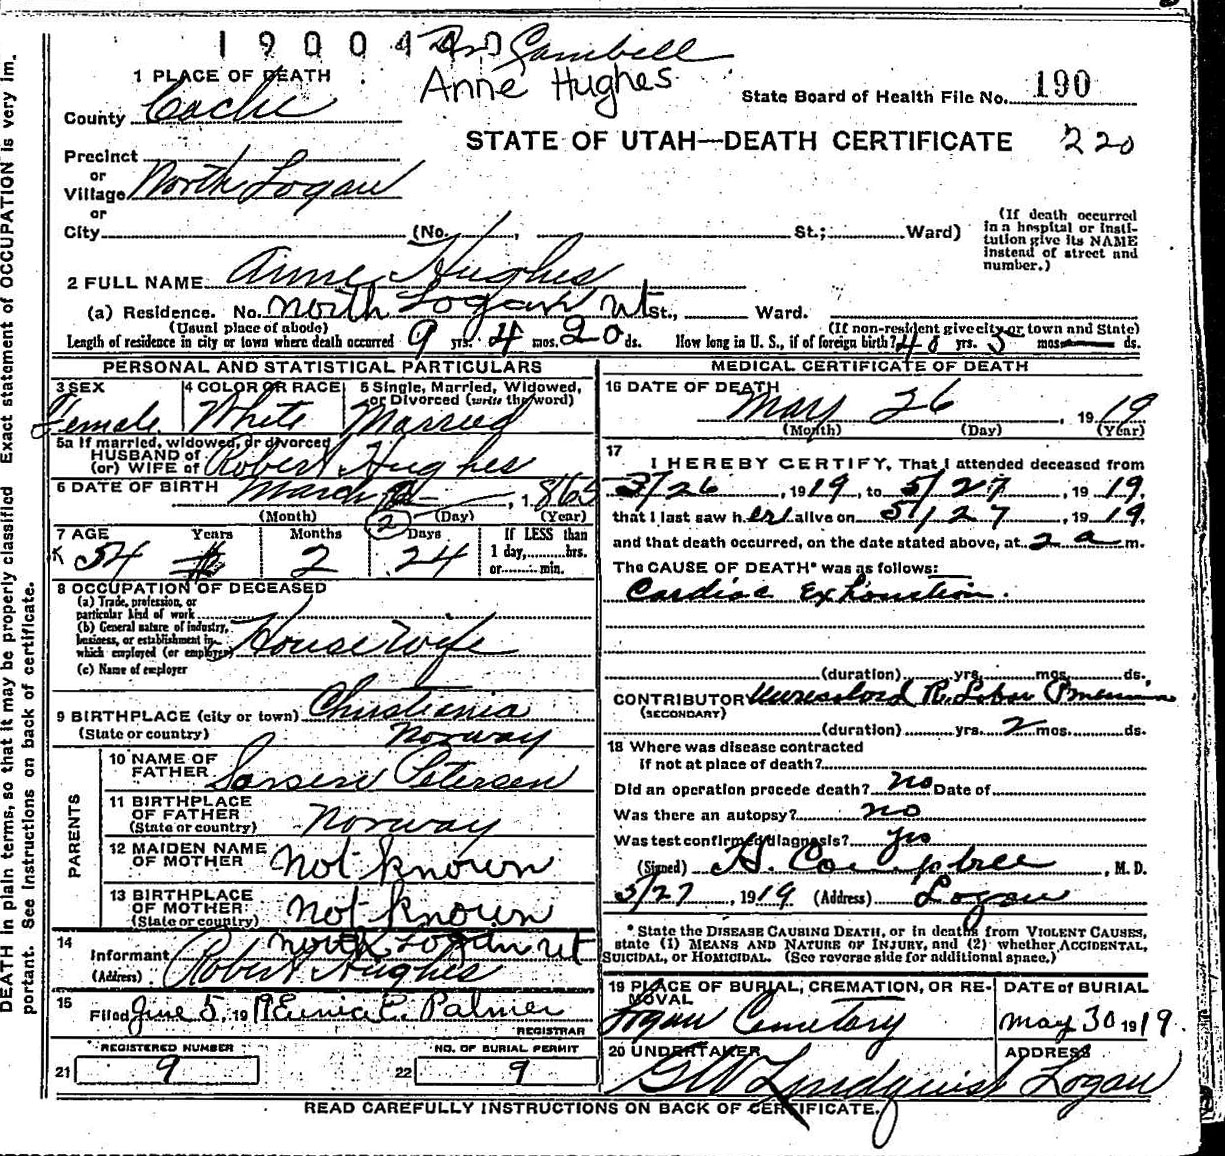 1 9 0 0 4
Anne Hughes
1 PLACE OF DEATH
State Board of Health File No. 190
County Cache
STATE OF UTAH—DEATH CERTIFICATE 220
Precinct
or
Village North Logan
or
City (No. , St.; Ward)
(If death occurred in a hospital or insti-
tution give its NAME instead of street and number.)
2 FULL NAME Anne Hughes
(a) Residence. No. North Logan Ut St., Ward.
(Usual place of abode) (If non-resident give city or town and State)
Length of residence in city or town where death occurred 9 yrs. 4 mos. 20 ds. How long in U. S., if of foreign birth? 48 yrs. 5 mos. ds.
PERSONAL AND STATISTICAL PARTICULARS
3 SEX Female
4 COLOR OR RACE White
5 Single, Married, Widowed, or Divorced (write the word) Married
5a If married, widowed, or divorced
HUSBAND of
(or) WIFE of Robert Hughes
6 DATE OF BIRTH March 2 , 1865
(Month) (Day) (Year)
7 AGE Years Months Days If LESS than
54 2 24 1 day, hrs.
or min.
8 OCCUPATION OF DECEASED
(a) Trade, profession, or
particular kind of work
(b) General nature of industry,
business, or establishment in
which employed (or employer) Housewife
(c) Name of employer
9 BIRTHPLACE (city or town) Christiania
(State or country) Norway
PARENTS
10 NAME OF FATHER Petersen
11 BIRTHPLACE OF FATHER (State or country) Norway
12 MAIDEN NAME OF MOTHER Not known
13 BIRTHPLACE OF MOTHER (State or country) Not known
14 North Logan Ut
Informant Robert Hughes
(Address)
15 Filed June 5, 1919 Eunice E. Palmer
REGISTRAR
REGISTERED NUMBER
21 9
NO. OF BURIAL PERMIT
22 9
MEDICAL CERTIFICATE OF DEATH
16 DATE OF DEATH May 26 , 1919
(Month) (Day) (Year)
17
I HEREBY CERTIFY, That I attended deceased from
3/26 , 1919, to 5/27 , 1919.
that I last saw her alive on 5/27 , 1919
and that death occurred, on the date stated above, at 2 a m.
The CAUSE OF DEATH* was as follows:
Cardiac Exhaustion.
(duration) yrs. mos. ds.
CONTRIBUTORY
(SECONDARY)
(duration) yrs. 2 mos. ds.
18 Where was disease contracted
if not at place of death?
Did an operation precede death? no Date of
Was there an autopsy? no
Was test confirmed diagnosis? yes
(Signed) , M. D.
5/27 , 1919 (Address) Logan
* State the DISEASE CAUSING DEATH, or in deaths from VIOLENT CAUSES,
state (1) MEANS AND NATURE OF INJURY, and (2) whether ACCIDENTAL,
SUICIDAL, or HOMICIDAL. (See reverse side for additional space.)
19 PLACE OF BURIAL, CREMATION, OR RE-
MOVAL
Logan Cemetary
DATE of BURIAL
May 30 1919.
20 UNDERTAKER
G W Lindquist
ADDRESS
Logan
READ CAREFULLY INSTRUCTIONS ON BACK OF CERTIFICATE.
DEATH in plain terms, so that it may be properly classified Exact statement of OCCUPATION is very im-
portant. See Instructions on back of certificate.